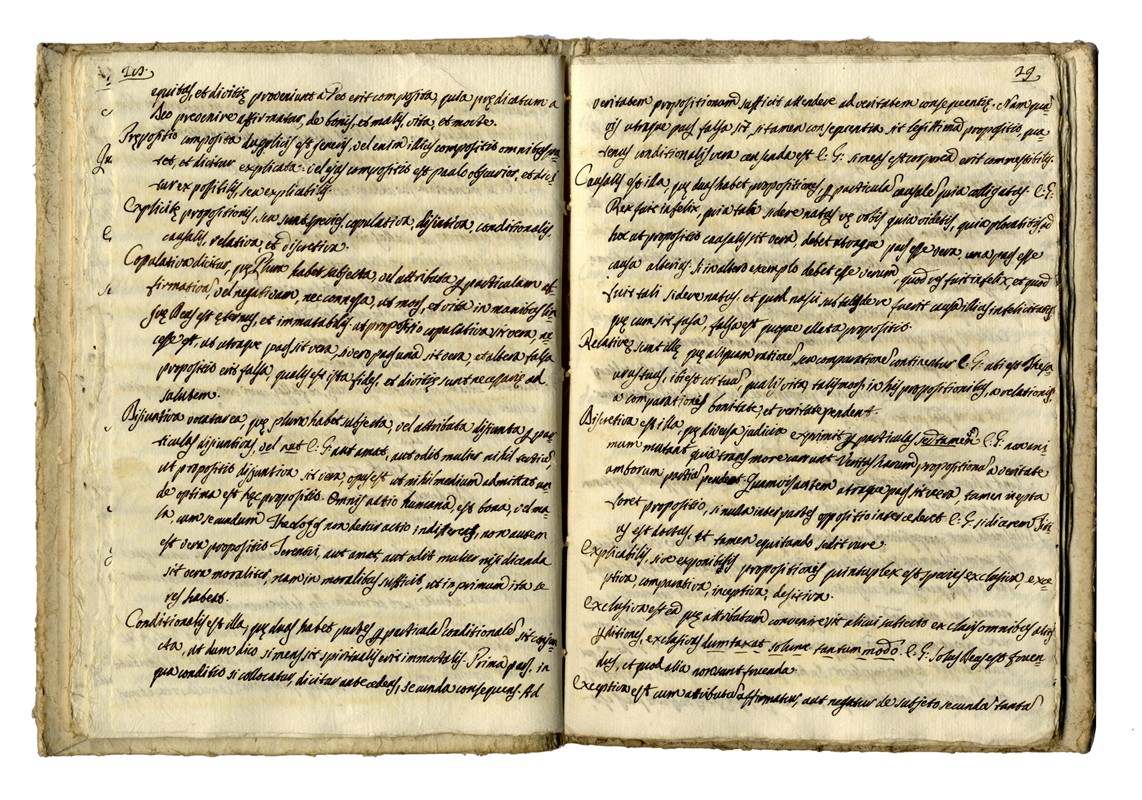 28
equitas, et divitię proveniunt a Deo erit composita, quia prędicatum a
Deo provenire affirmatur, de bonis, et malis, vita, et morte.
Propositio composita duplicis est generis, vel enim illius compositio omnibus pa-
tet, et dicitur explicata: vel ejus compositio est paulo obscurior, et dici-
tur expositilis, seu explicabilis.
Explicitę propositionis, sex sunt species, copulativa, disjuntiva, conditionalis,
causalis, relativa, et discretiva.
Copulativa dicitur, quę Plura habet subjecta, vel attributa p particulam af-
firmativa, vel negativam, nec connexa, ut mors, et vita in manibus lin-
guę Deus est ęternus, et immutabilis. ut propositio copulativa sit vera, ne-
cesse est, ut utraque pars sit vera, si vero pars una sit vera, et altera falsa
propositio erit falsa, qualis est ista fides, et divitię sunt necessarię ad
salutem.
Disjuntiva vocatur ea, quę plura habet subjecta, vel attributa disjunta p par-
ticulas disjuntivas, vel aut C. G. aut amat, aut odit mulier nihil tertium,
ut propositio disjuntiva sit vera, opus est ut nihil medium admittat un-
de optima est hęc propositio. Omnis actio humana, est bona, vel ma-
la, cum secundum Theologos non detur actio indifferens, non autem
est vera propositio Terentii, aut amat, aut odit mulier nisi dicenda
sit vera moraliter, nam in moralibus sufficit, ut in primum ita se
res habeat.
Conditionalis est illa, quę duas habet partes p particula conditionale sit conjun-
cta, ut dum dico si mens sit spiritualis erit immortalis. Prima pars, in
qua conditio si collocatur, dicitur antecedens, secunda consequens. Ad
29
veritatem propositionum sufficit attendere ad veritatem consequentię. Nam qua-
vis utraque pars falsa sit, si tamen consequentia sit legittima propositio, qua-
tenus conditionalis vera censenda est C. G. si mens est corporea erit commestibilis.
Causalis est illa, quę duas habet propositiones, p particula causale quia colligatas. C. G.
Rex fuit infelix, quia tali sidere natus
hoc ut propositio causalis sit vera, debet utraque pars esse vera, una pars esse
causa alterius. Si in altero exemplo debet esse verum, quod vis fuit infelix, et quod
fuit tali sidere natus. et quod nasci, ut tali sidere fuerit causa illius infelicitatis
quę cum sit falsa, falsa est quoque allata propositio.
Relativę sunt illę quę aliquam ratione, seu comparatione continentur C. G. ubi est Thesau-
urus tuus, ibi est cor tuum, qualis vita, talis mors in his propositionibus, a relationis,
a comparationis bonitate, et veritate pendent.
Discretiva est illa, quę diversa judicia exprimit p particulas sed tamen C. G. non ani-
mum mutant qui trans mare currunt. Veritas harum propositionum a veritate
amborum partium pendet. Quamvis autem utraque pars sit vera, tamen inepta
foret propositio, si nulla inter partes oppositio intercederet C. G. si dicerem Tit-
us est doctus, et tamen equitando sedit rure.
Explicabilis, sive exponibilis propositiones quintuplex est species exclusiva, exce-
ptiva, comparativa, inceptiva, desitiva.
Exclusiva est ea quę attributum convenire sit alicui subiecto exclusis omnibus aliis
p ditiones, exclusivas dumtaxat solum tantum modo. C. G. Solus Deus est fruen-
dus, et quod alia non sunt fruenda.
Exceptiva est cum attributum affirmatur, aut negatur de subjeto secundu tantu